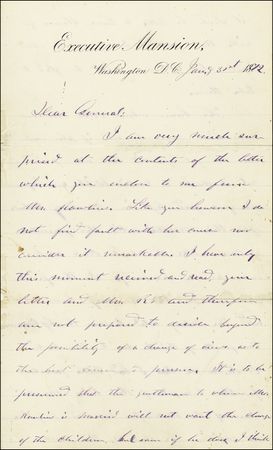 Executive Mansion,
Washington D.C. Jany 31st 1872
Dear General;
I am very much sur
prised at the contents of the letter
which you enclose to me from
Mrs. Like you however I do
not find fault with her course nor
consider it remarkable. I have only
this moment received and read your
letter and Mrs. R's and therefore
am not prepared to decide beyond
the possibility of a change of views as to
the best presence. It is to be
presumed that the gentleman to whom Mrs.
Rawlins is married will not want the charge
of the children, but even if he does I think